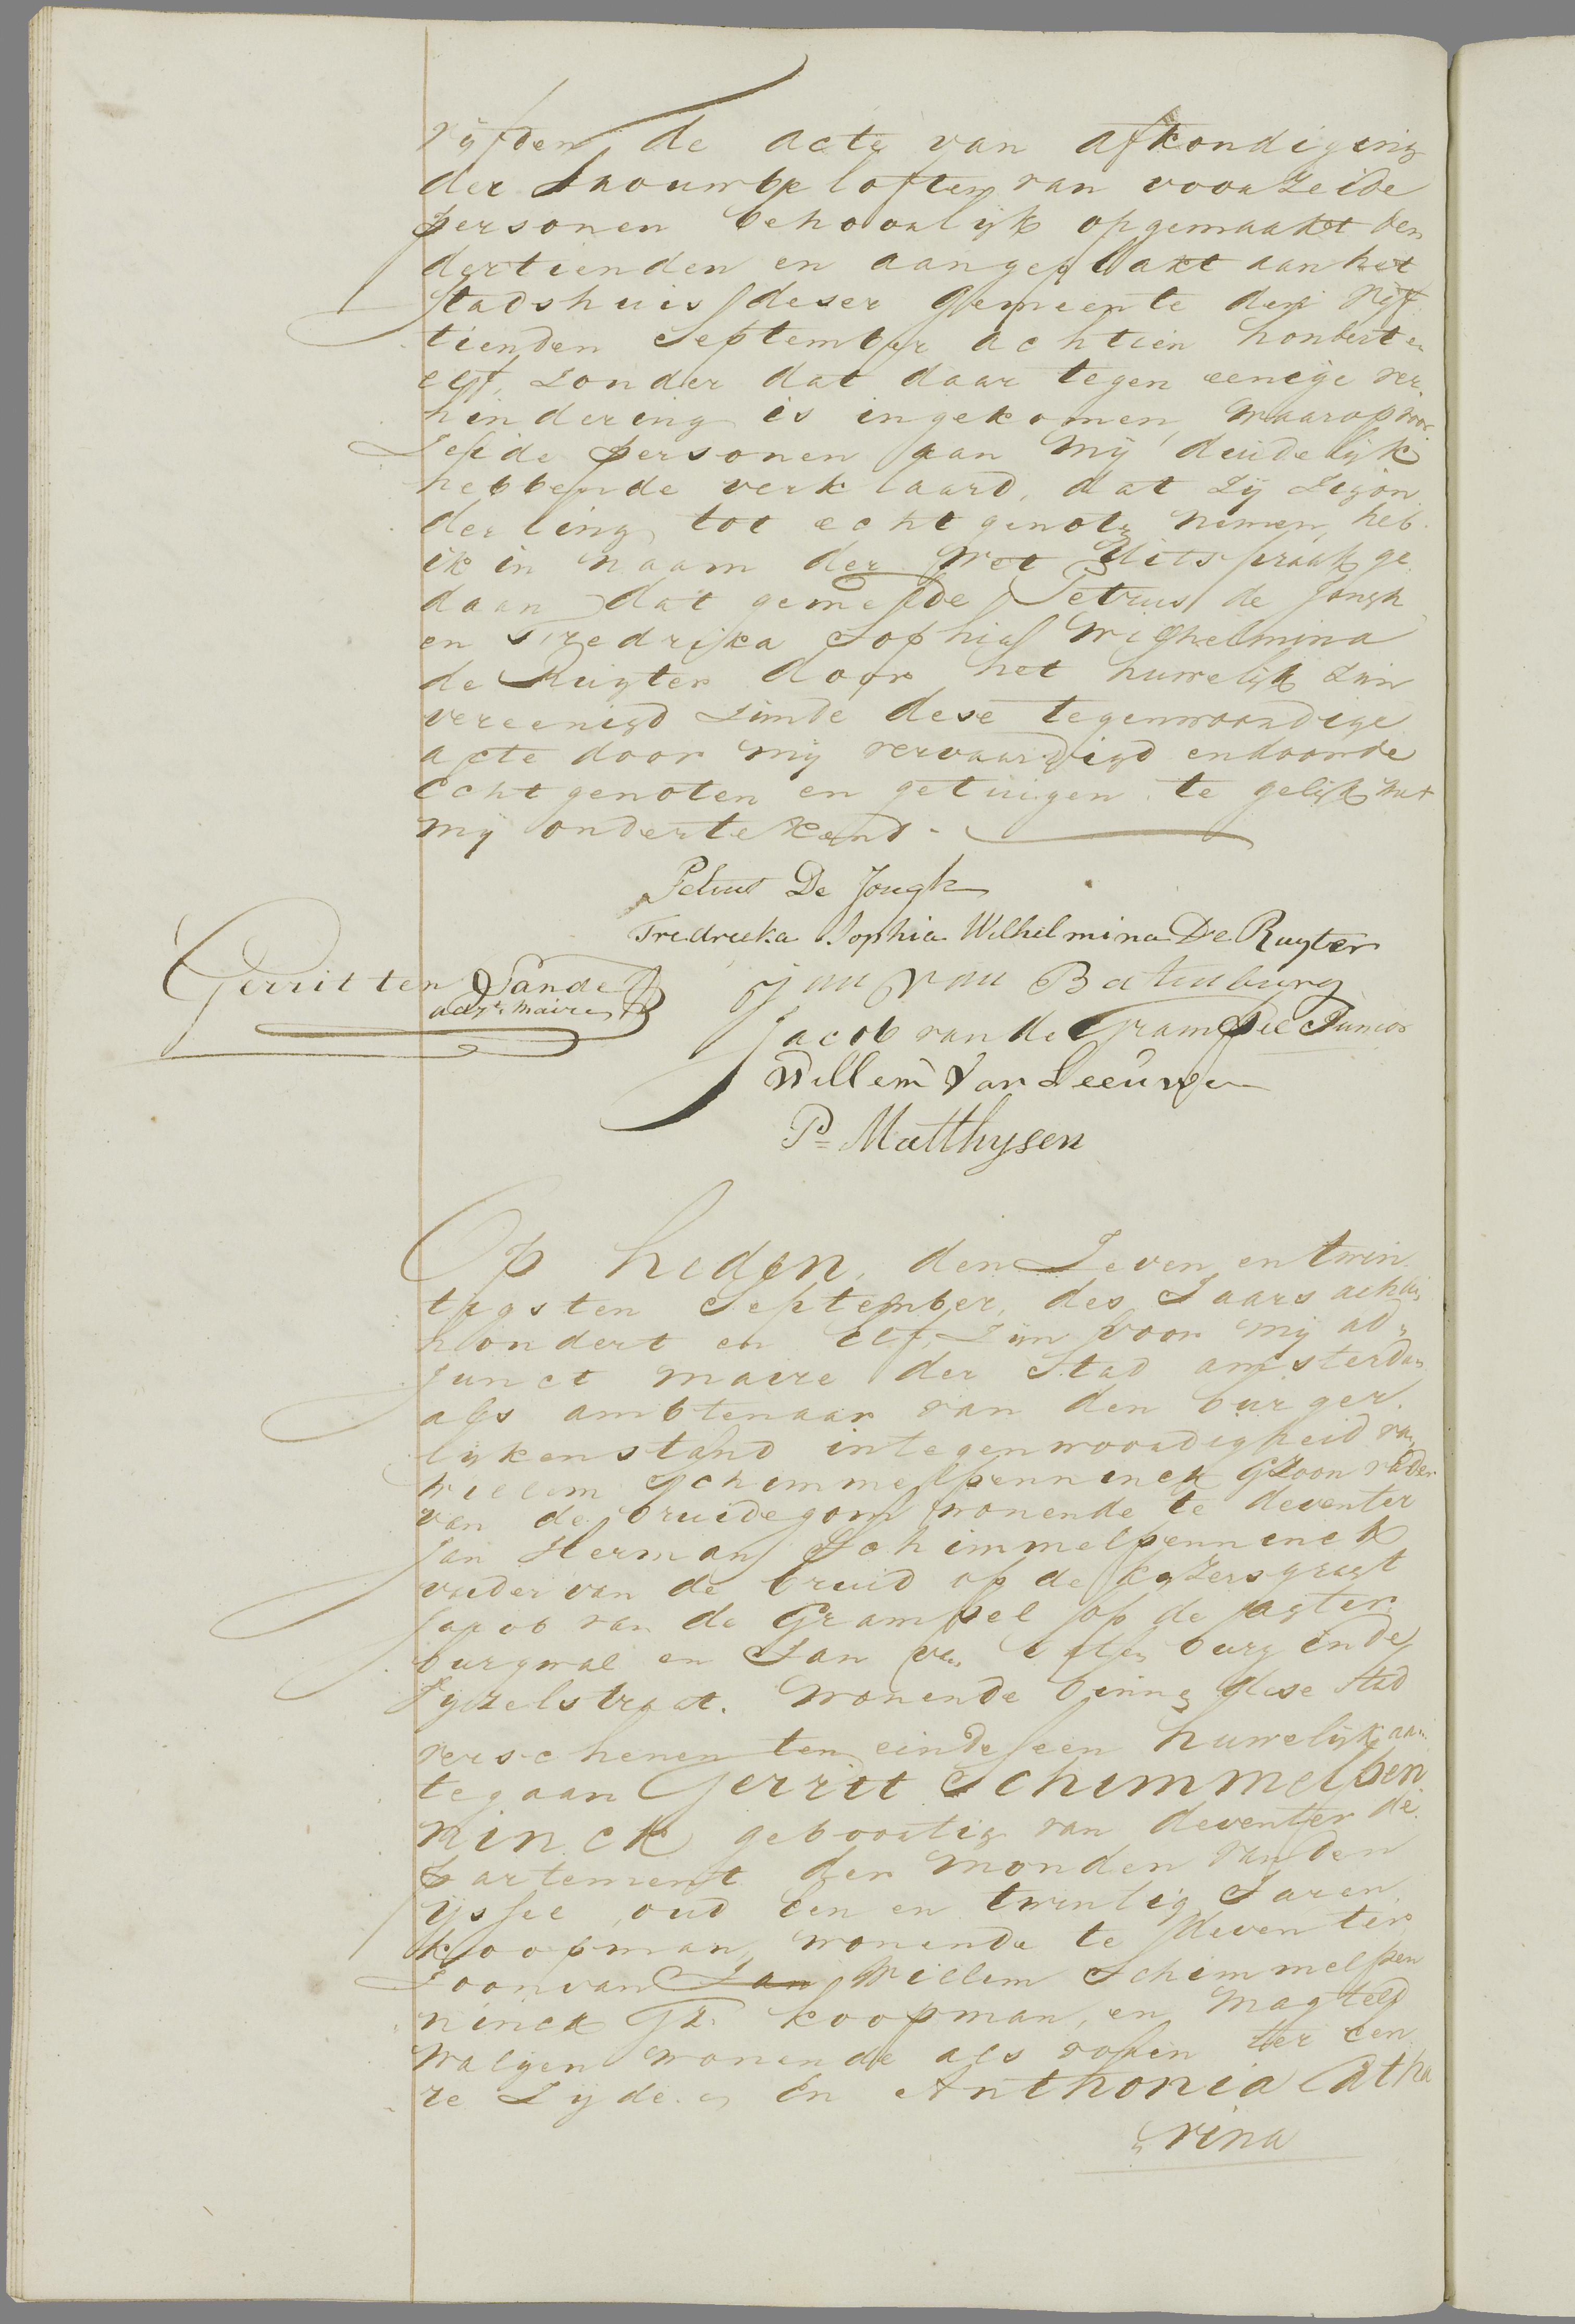 vijfden de acte van afkondiging
der trouwbeloften van voorzeide
personen behoorlijk opgemaakt den
dertienden en aangeplakt aan het
stadshuis deser gemeente den vijf
tienden September achtien hondert en
elf, zonder dat daar tegen eenige ver
hindering is ingekomen, waarop voor
zeide personen aan mij duidelijk
hebbende verklaard, dat zij zig on
derling tot echtgenote nemen, heb
ik in naam der wet uitspraak ge
daan dat gemelde Petrus de Jongh
en Fredrika Sophia Wilhelmina
de Ruijter door het huwelijk zijn
vereenigd zinde dese tegenwoordige
acte door mij vervaardigd en door de
echtgenoten en getuigen te gelijk met
mij ondertekend.
Petrus De Jongh
Fredreeka Sophia Wilhelmina De Ruyter
Gerrit ten Sande
adj. maire
Jan van Batenburg
Jacob van de Grampel Junior
Willem Van Leeuwen
P= Matthysen
Op heden, den Zeven en twin
tigsten September, des Jaars achtien
hondert en elf, Zijn voor mij ad=
junct maire der Stad amsterdam
als ambtenaar van den burger
lijken stand in tegenwoordigheid van
Willem Schimmelpenninck Gzoon vader
van de bruidegom wonende te deventer
Jan Herman Schimmelpenninck
vader van de bruid op de keizersgragt
Jacob van de Grampel op de agter
burgwal en Jan van Batenburg in de
Vijzelstraat. wonende binnen dese stad
verschenen ten einde een huwelijk aan
tegaan Gerrit Schimmelpen
ninck geboortig van deventer de
partement der monden van den
ijssel, oud een en twintig Jaren
koopman, wonende te deventer
Zoon van Jan Willem Schimmelpen
ninck Gz. koopman, en Magteld
Walijen wonende als voren ter een
re Zijde. en Anthonia Catha
rina